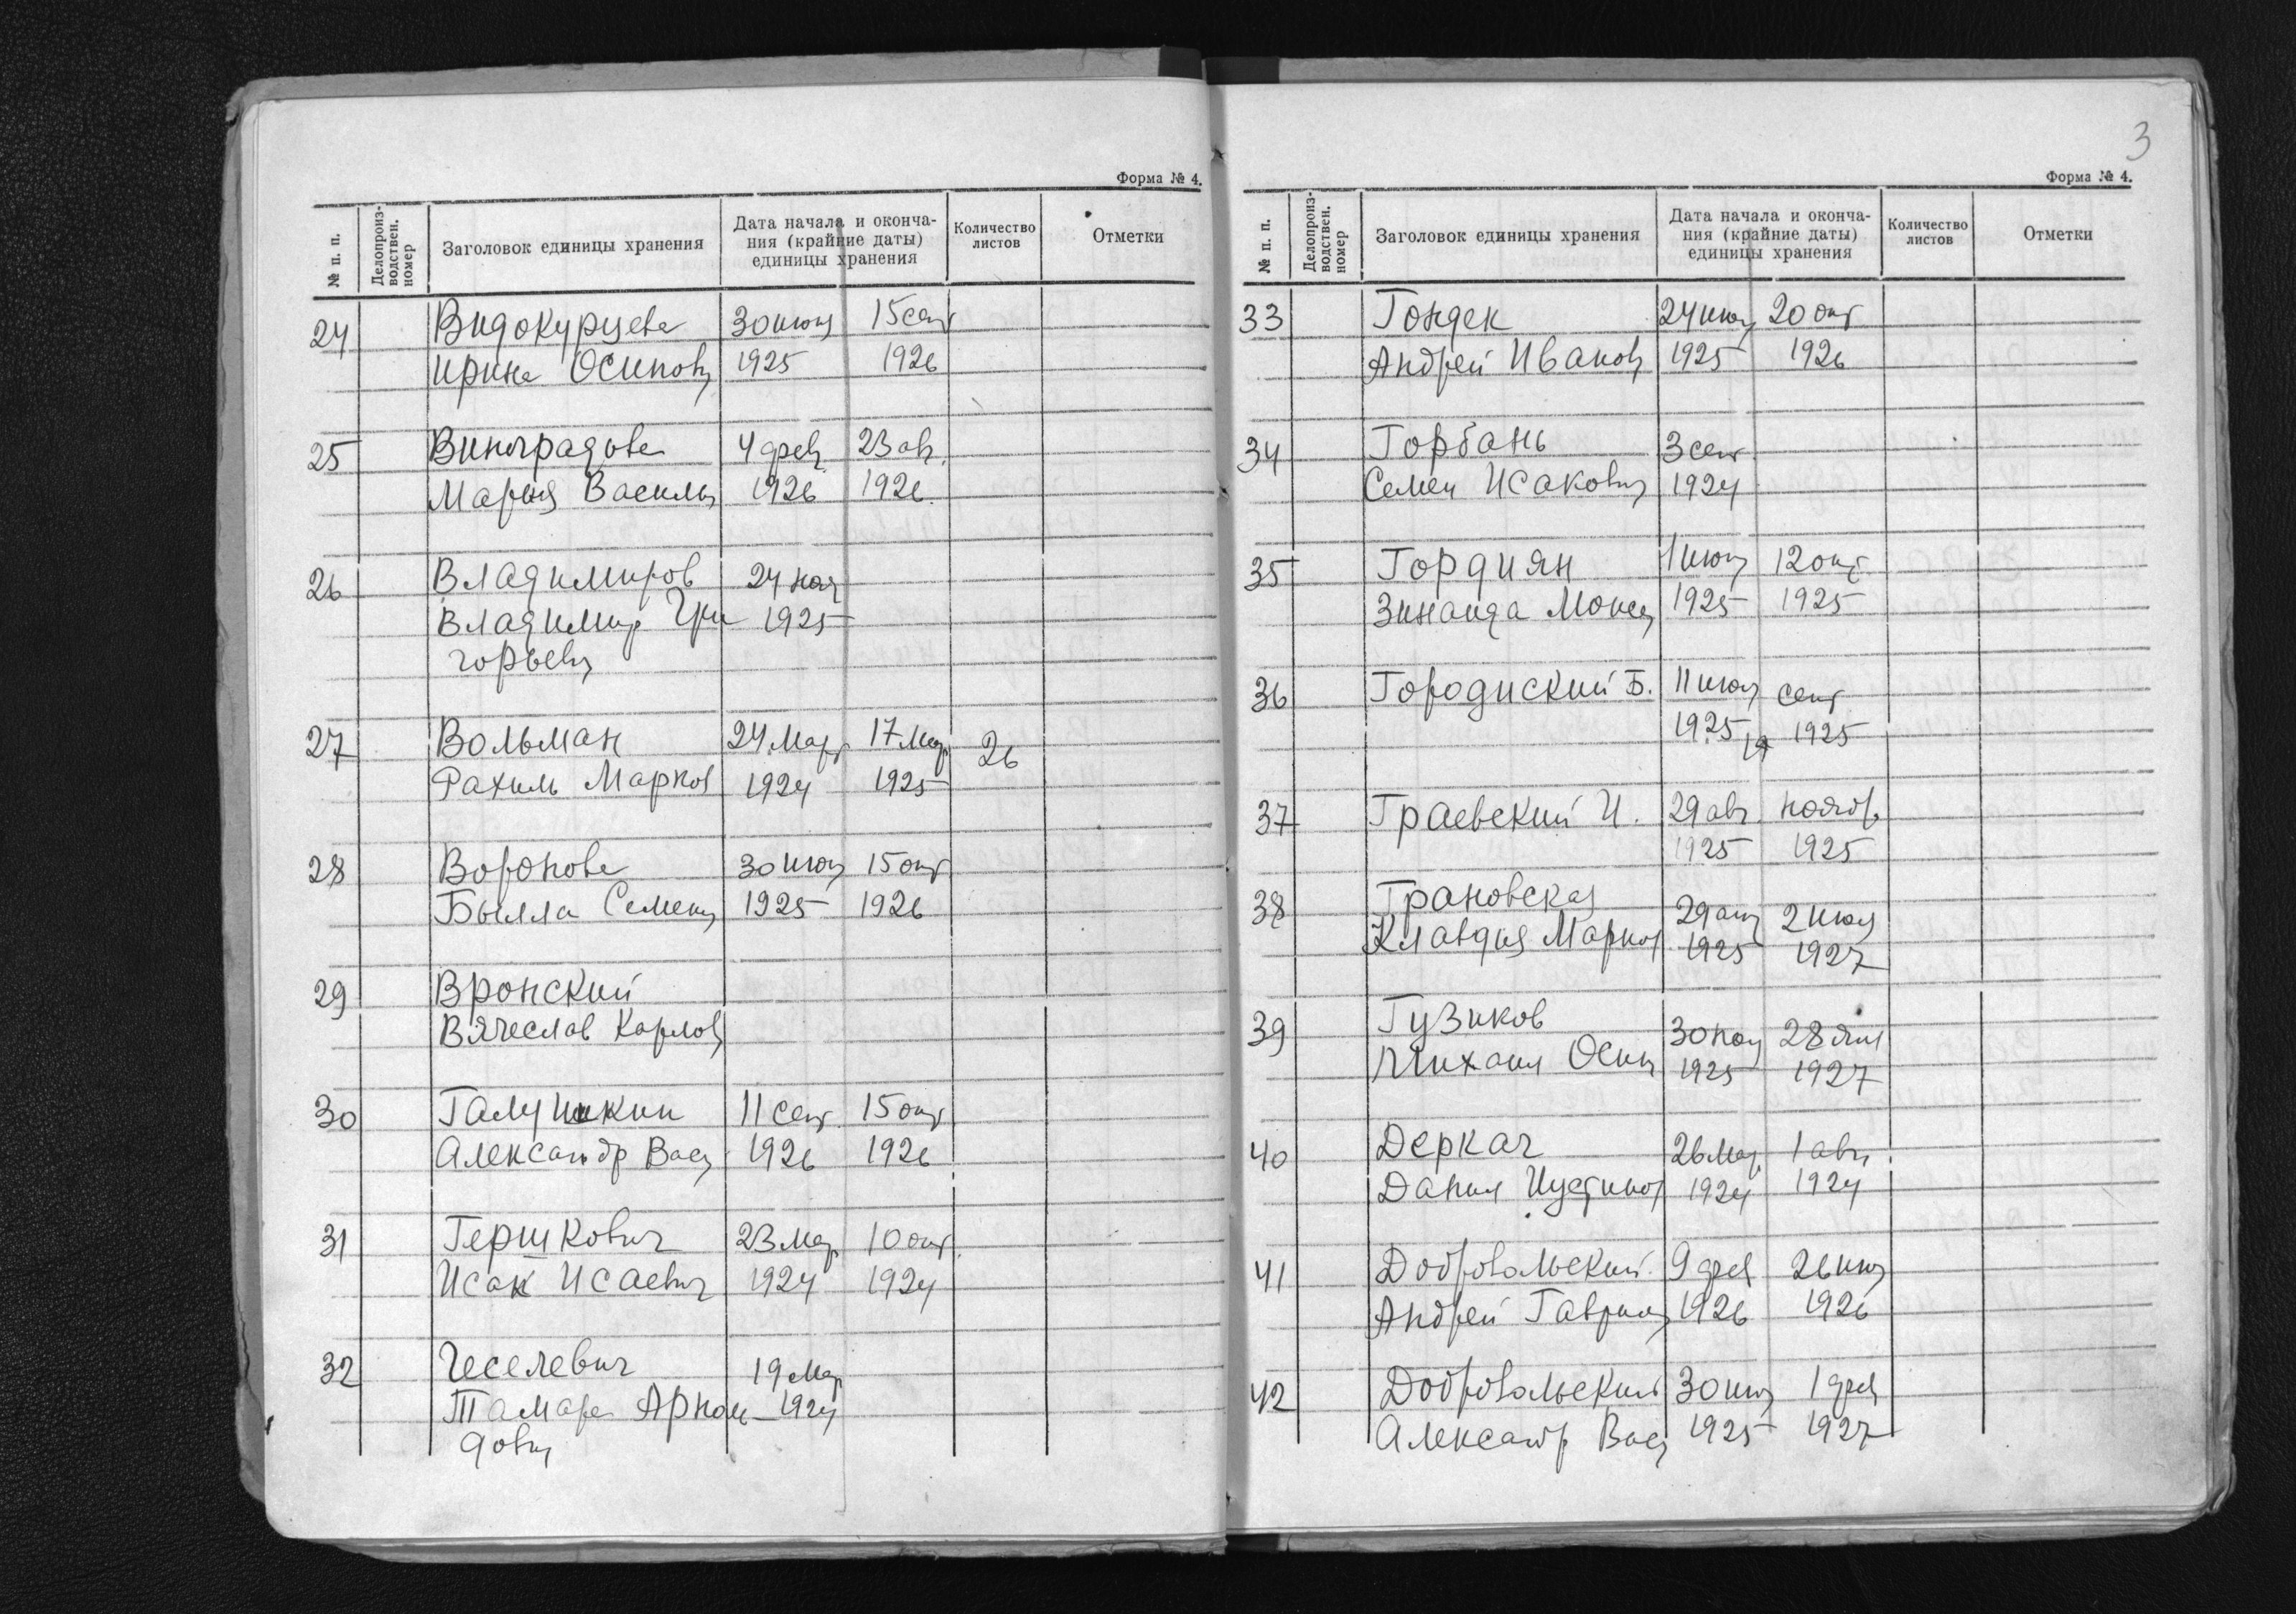 Форма № 4.
№ п. п.
Делопроиз-
водствен.
номер
Заголовок единицы хранения
Дата начала и оконча-
ния (крайние даты)
единицы хранения
Количество
листов
Отметки
24 Видокурцева 30 июн 15 сент
Ирина Осипов 1925 1926
25 Виноградова 4 фев. 23 авг.
Мария Василь 1926 1926.
26 Владимиров 24 ноя
Владимир Гри 1925
горьев
27 Вольман 24 март 17 мар. 26
Рахиль Марков 1924 1925
28 Воронова 30 июн 15 окт
Былла Семен 1925 1926
29 Вронский
Вячеслав Карлов
30 Галушкин 11 сент. 15 окт
Александр Вас 1926 1926
31 Гершкович 23 мар. 10 окт.
Исак Исаевич 1924 1924
32 Геселевич 19 мар
Тамара Арноль 1924
дов
3
Форма № 4.
№ п. п.
Делопроиз-
водствен.
номер
Заголовок единицы хранения
Дата начала и оконча-
ния (крайние даты)
единицы хранения
Количество
листов
Отметки
33 Гондек 24 июн 20 окт
Андрей Иванов 1925 1926
34 Горбань 3 сент
Семен Исакович 1924
35 Гордиян 1 июн 12 окт
Зинаида Моисе 1925 1925
36 Городиский Б. 11 июл сент
1925 1925
37 Граевский И. 29 авг. нояб.
1925 1925
38 Грановская 29 2 июл
Клавдия Марков 1925 1927
39 Гузиков 30 ноя 28 янв
Михаил Осип 1925 1927
40 Деркач 26 мар. 1 авг.
Данил Иустинов 1924 1924
41 Добровольский 9 фев 26 июн
Андрей Гаврил 1926 1926
42 Добровольский 30 июн 1 фев
Александр Вас 1925 1927